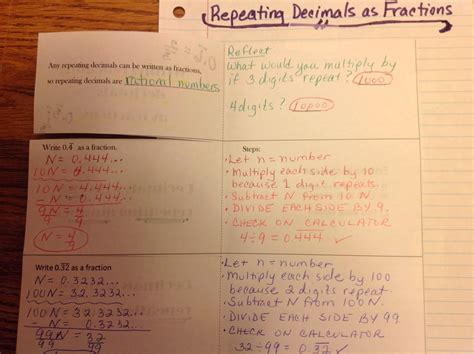 Repeating Decimals as Fractions
Any repeating decimals can be written as fractions,
so repeating decimals are rational numbers
Reflect
What would you multiply by
if 3 digits repeat? 1000
4 digits? 10,000
Write 0.4̅ as a fraction.
N = 0.444...
10N = 4.444...
10N = 4.444...
- N = 0.444...
9N = 4
9 9
N = 4/9
Steps:
• Let n = number
• Multiply each side by 10
because 1 digit repeats.
• Subtract N from 10N.
• DIVIDE EACH SIDE BY 9.
• CHECK ON CALCULATOR
4÷9 = 0.444 ✓
Write 0.3̅2̅ as a fraction
N = 0.3232...
100N = 32.3232...
100N = 32.3232...
- N = 0.3232...
99N = 32
99 99
• Let n = number
• Multiply each side by 100
because 2 digits repeat.
• Subtract N from 100N.
• DIVIDE EACH SIDE BY 99.
• CHECK ON CALCULATOR
32÷99 = 0.3̅2̅ ✓